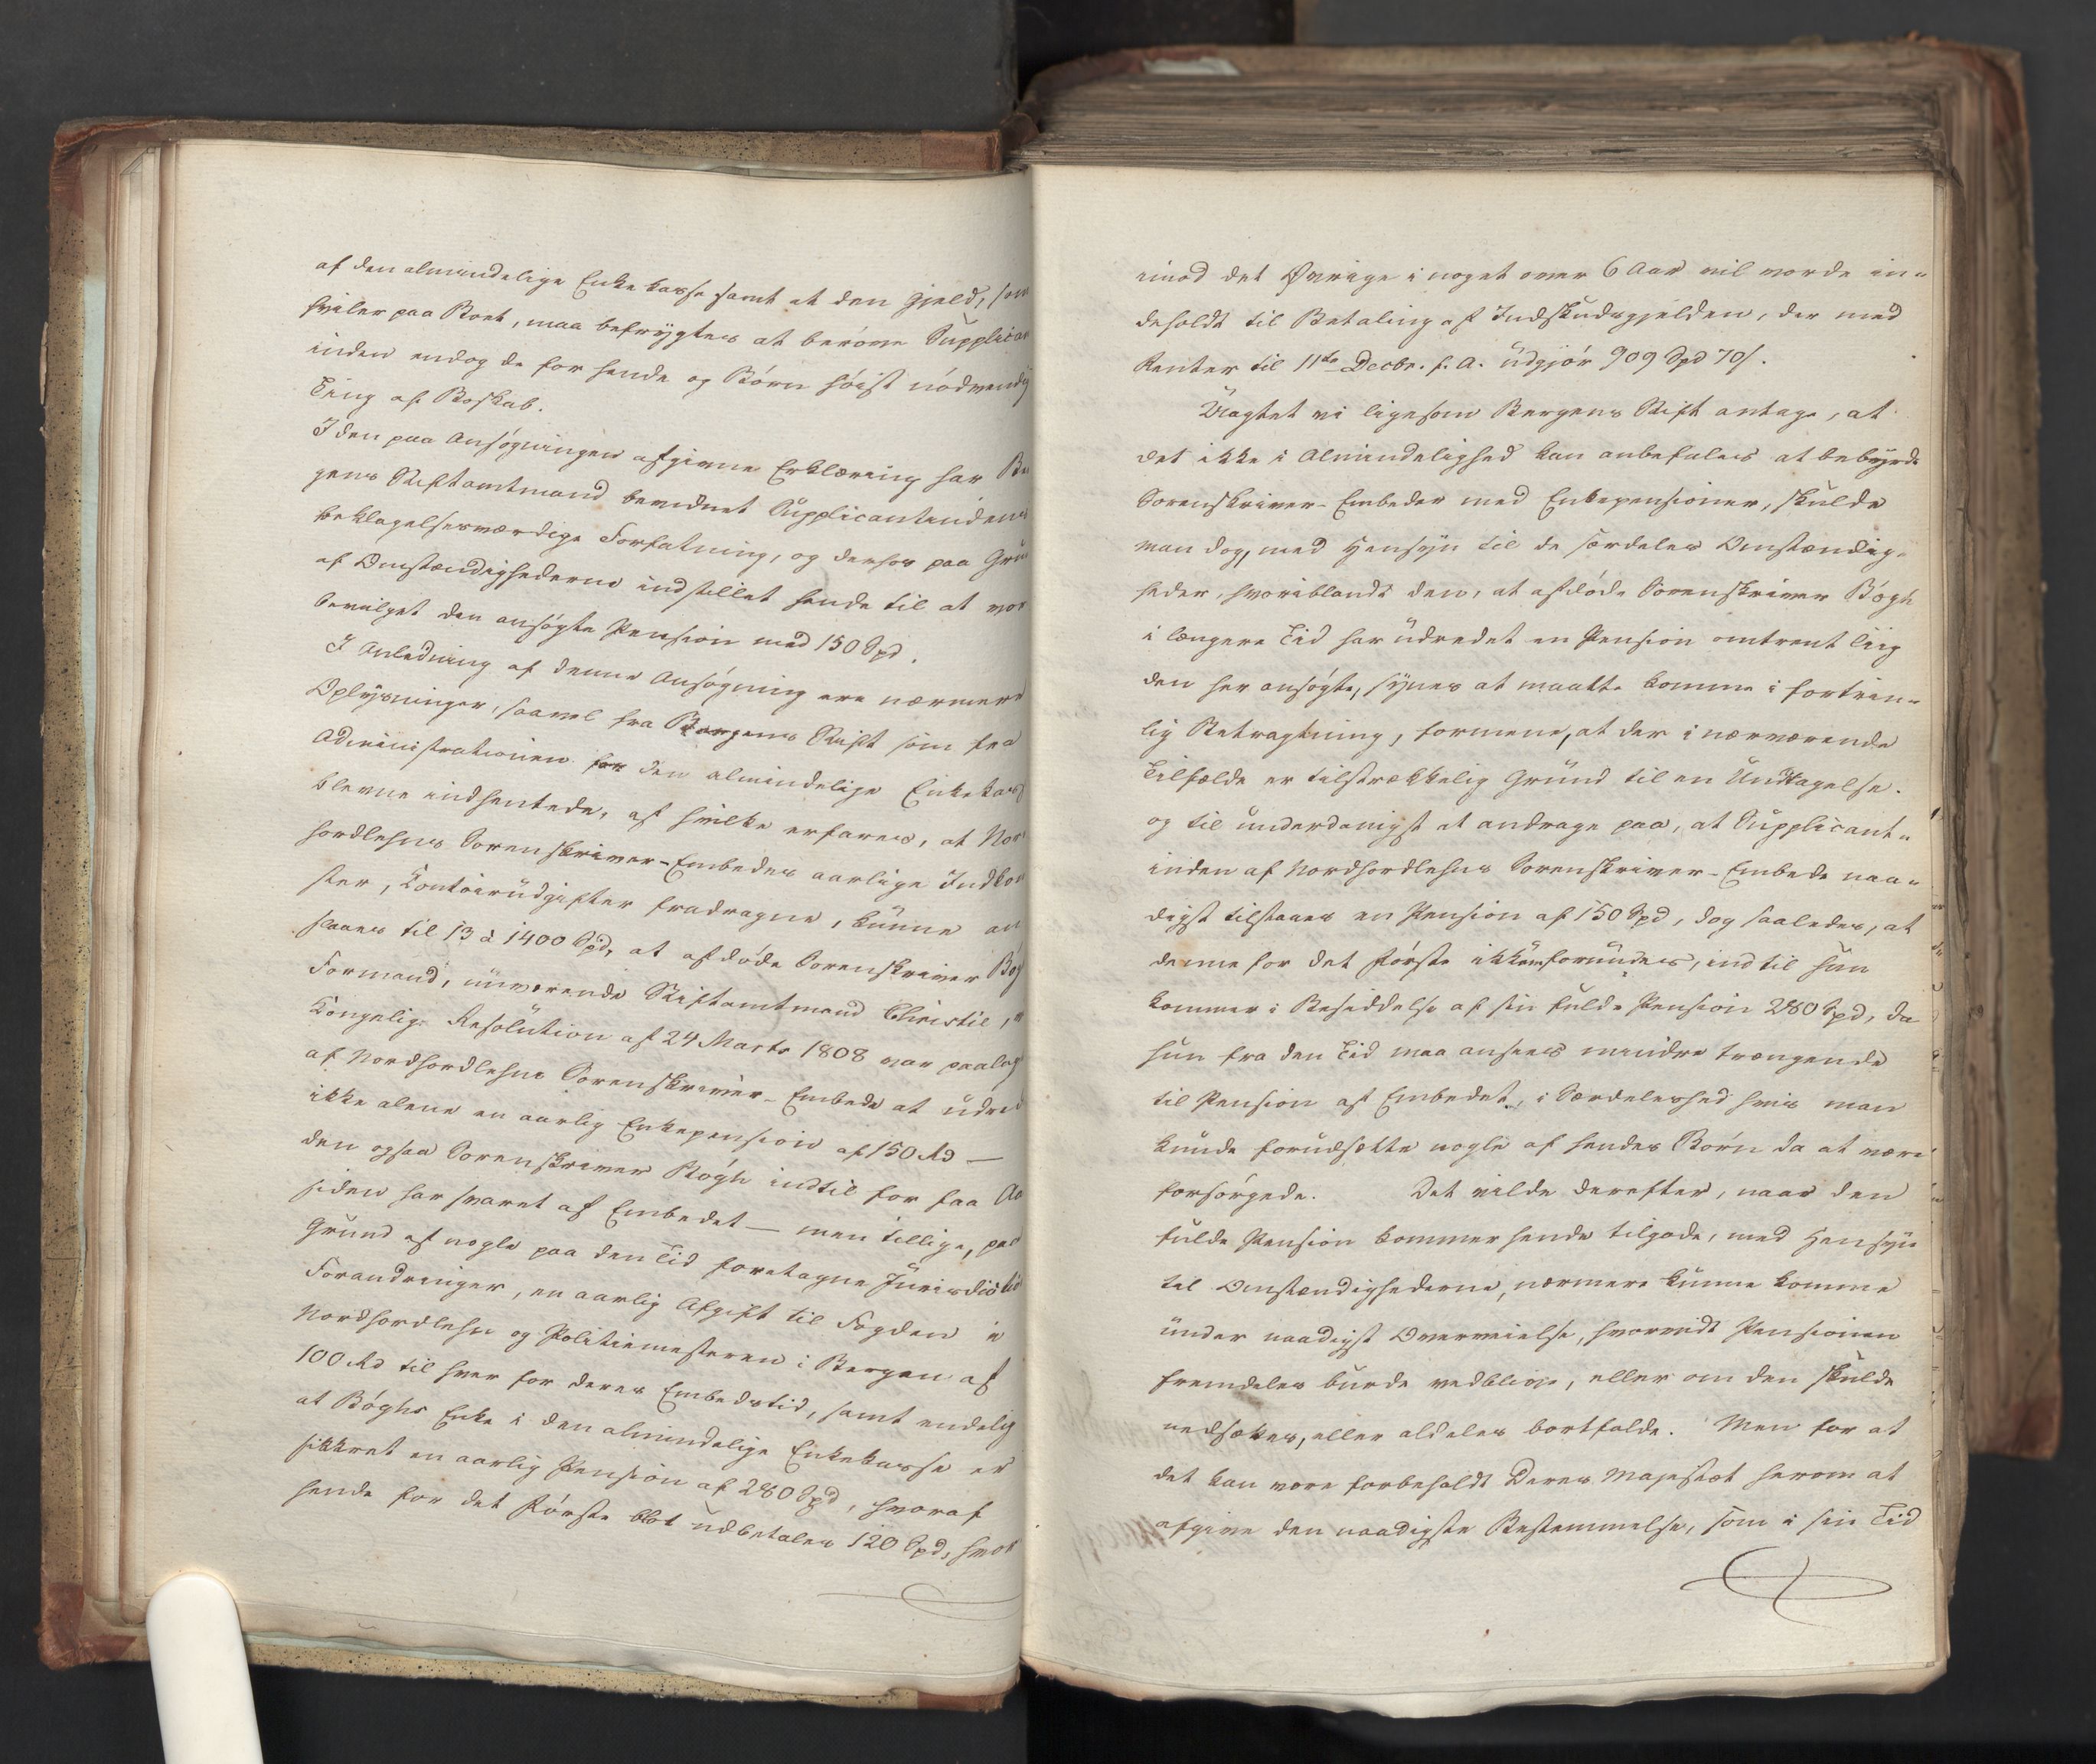 af den almindelige Enkekasse samt at den Gjeld, som
hviler paa Boet, maa befrygtes at beröve Supplican
inden endog de for hende og Börn höist nödvendig
Ting af Boskab.
I den paa Ansögningen afgivne Erklæring har Be
gens Stiftamtmand bevidnet Supplicantindens
beklagelsesværdige Forfatning, og derfor paa Gru
af Omstændighederne indstillet hende til at vor
bevilget den ansögte Pension med 150 Spd.
I Anledning af denne Ansögning ere nærmere
Oplysninger, saavel fra Bergens Stift som fra
Administrationen for den almindelige Enkekass
blevne indhentede, af hvilke erfares, at Nor
hordlehns Sorenskriver-Embedes aarlige Indkom
ster, Contoirudgifter fradragne, kunne an
slaaes til 13 à 1400 Spd, at afdöde Sorenskriver Bög
Formand, nuværende Stiftamtmand Christie, v
Kongelig Resolution af 24 Marts 1808 var paalag
af Nordhordlehns Sorenskriver-Embede at udred
ikke alene en aarlig Enkepension af 150 Rd —
den ogsaa Sorenskriver Bögh indtil for faa Aa
siden har svaret af Embedet — men tillige, paa
Grund af nogle paa den Tid foretagne Jurisdictio
Forandringer, en aarlig Afgift til Fogden i
Nordhordlehn og Politiemesteren i Bergen af
100 Rd til hver for deres Embedstid, samt endelig
at Böghs Enke i den almindelige Enkekasse er
sikkret en aarlig Pension af 280 Spd, hvoraf
hende for det Förste blot udbetales 120 Spd, hvor
imod det Övrige i noget over 6 Aar vil vorde in-
deholdt til Betaling af Indskudsgjelden, der med
Renter til 11te Decbr. f. A. udgjör 909 Spd 70 s.
Uagtet vi ligesom Bergens Stift antage, at
det ikke i Almindelighed kan anbefales at bebyrde
Sorenskriver-Embeder med Enkepensioner, skulde
man dog, med Hensyn til de særdeles Omstændig-
heder, hvoriblandt den, at afdöde Sorenskriver Bögh
i længere Tid har udredet en Pension omtrent liig
den her ansögte, synes at maatte komme i fortrin-
lig Betragtning, formene, at der i nærværende
Tilfælde er tilstrækkelig Grund til en Undtagelse.
og til underdanigst at andrage paa, at Supplicant-
inden af Nordhordlehns Sorenskriver-Embede naa-
digst tilstaaes en Pension af 150 Spd, dog saaledes, at
denne for det Förste ikkun forundes, indtil hun
kommer i Besiddelse af sin fulde Pension 280 Spd, da
hun fra den Tid maa ansees mindre trængende
til Pension af Embedet, i Særdeleshed hvis man
kunde forudsætte nogle af hendes Börn da at være
forsörgede. Det vilde derefter, naar den
fulde Pension kommer hende tilgode, med Hensyn
til Omstændighederne, nærmere kunne komme
under naadigst Overveielse, hvorvidt Pensionen
fremdeles burde vedblive, eller om den skulde
nedsættes, eller aldeles bortfalde. Men for at
det kan være forbeholdt Deres Majestæt herom at
afgive den naadigste Bestemmelse, som i sin Tid